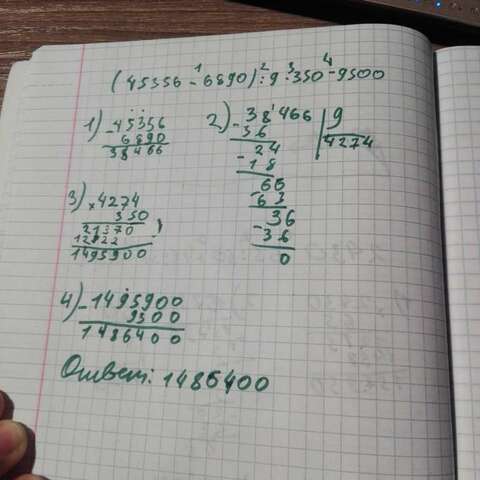 (45356 - 6890) : 9 · 350 - 9500
1 2 3 4
1) - 45356
6890
38466
2) - 38466 | 9
36 4274
- 24
18
- 66
63
- 36
36
0
3) × 4274
350
21370
12822
1495900
4) - 1495900
9500
1486400
Ответ: 1486400